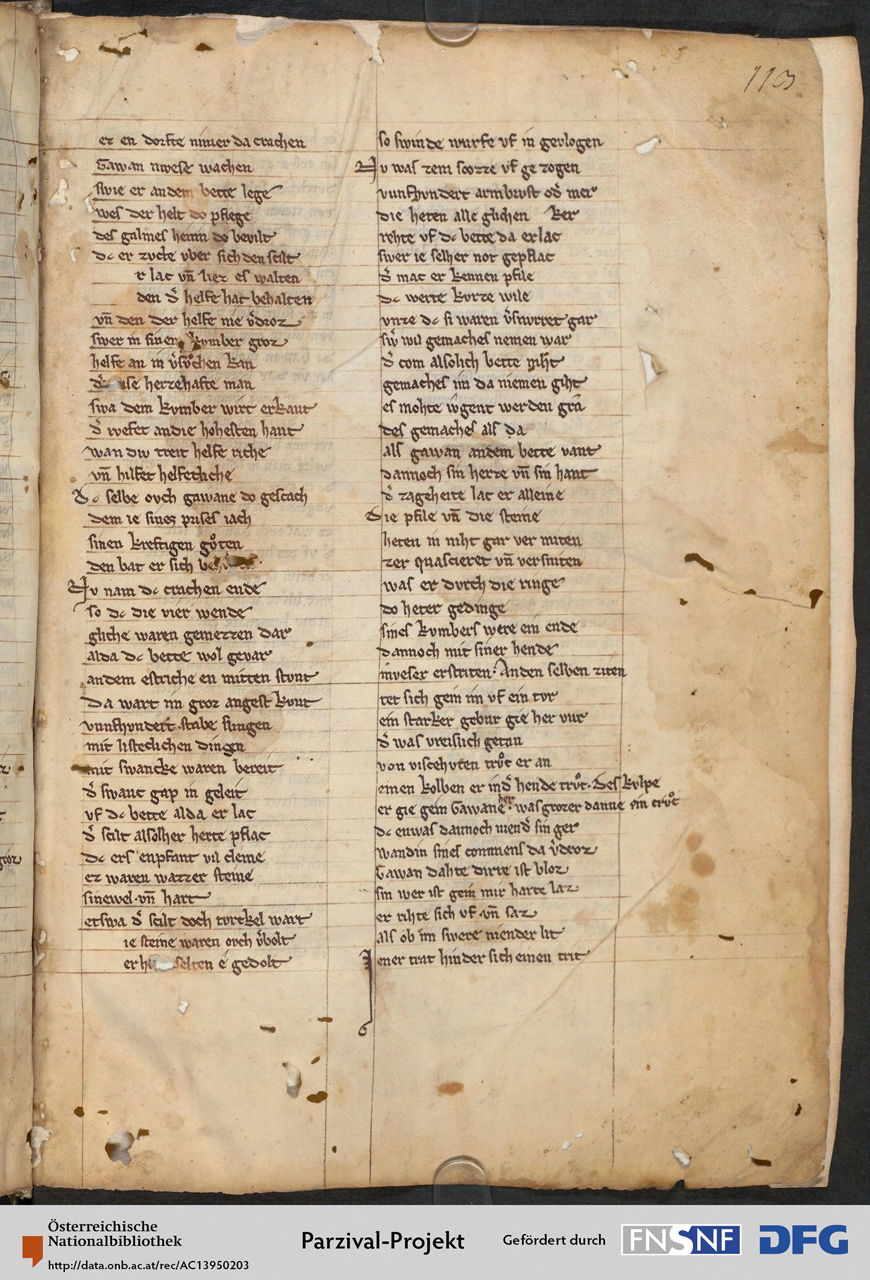 113
ez en dorfte nimer da crachen
Gawan mvese wachen
swie er andem bette lege
wes der helt do pflege
des galmes heim do bevilt
dc er zvcte vber sich den scilt
r lac vn̄ liez es walten
den d̾ helfe hat behalten
vn̄ den der helfe nie v̾droz
swer in sinen kvmber groz
helfe an in v̾svͦchen kan
d̾ ise herzehafte man
swa dem kvmber wirt erkant
d̾ rvͤfet andie hohesten hant
wan div treit helfe riche
vn̄ hilfet helfecliche
Dc selbe ovch gawane do gescach
dem ie sines prises iach
sinen kreftigen gvͦten
den bat er sich
Nv nam dc crachen ende
so dc die vier wende
gliche waren gemezzen dar
alda dc bette wol gevar
andem estriche en mitten stvnt
da wart im groz angest kvnt
vunfhvndert stabe slingen
mit listeclichen dingen
mit swancke waren bereit
d̾ swanc gap in geleit
vf dc bette alda er lac
d̾ scilt alsolher herte pflac
dc ers enpfant vil cleine
ez waren wazzer steine
sinewel vn̄ hart
etswa d̾ scilt doch tvrckel wart
ie steine waren ovch v̾bolt
er selten e gedolt
so swinde wurfe vf in gevlogen
Nv was zem scozze vf ge zogen
vunfhvndert armbrvst od̾ mer
die heten alle glichen ker
rehte vf dc bette da er lac
swer ie selher not gepflac
d̾ mac er kennen pfile
dc werte kvrze wile
vnze dc si waren v̾swirret gar
sw̾ wil gemaches nemen war
d̾ com alsolich bette niht
gemaches im da niemen giht
es mohte ivgent werden gra
des gemaches als da
als gawan andem bette vant
dannoch sin herze vn̄ sin hant
d̾ zageheite lac er alleine
Die pfile vn̄ die steine
heten in niht gar ver miten
zer quascieret vn̄ versniten
was er dvrch die ringe
do heter gedinge
sines kvmbers were ein ende
dannoch mit siner hende
mveser erstriten. Anden selben ziten
tet sich gein im vf ein tvr
ein starker gebur gie her vur
d̾ was vreislich getan
von viscehvten trvͦc er an
einen kolben er ind̾ hende trvͦc. Des kvlpe
er gie gein Gawane her. was grozer danne ein crvͦc
dc enwas dannoch niend̾ sin ger
wandin sines commens da v̾droz
Gawan dahte dirre ist bloz
sin wer ist gein mir harte laz
er rihte sich vf vn̄ saz
als ob im swere niender lit
Iener trat hinder sich einen trit
Österreichische
Nationalbibliothek
http://data.onb.ac.at/rec/AC13950203
Parzival-Projekt
Gefördert durch
FNSNF
DFG